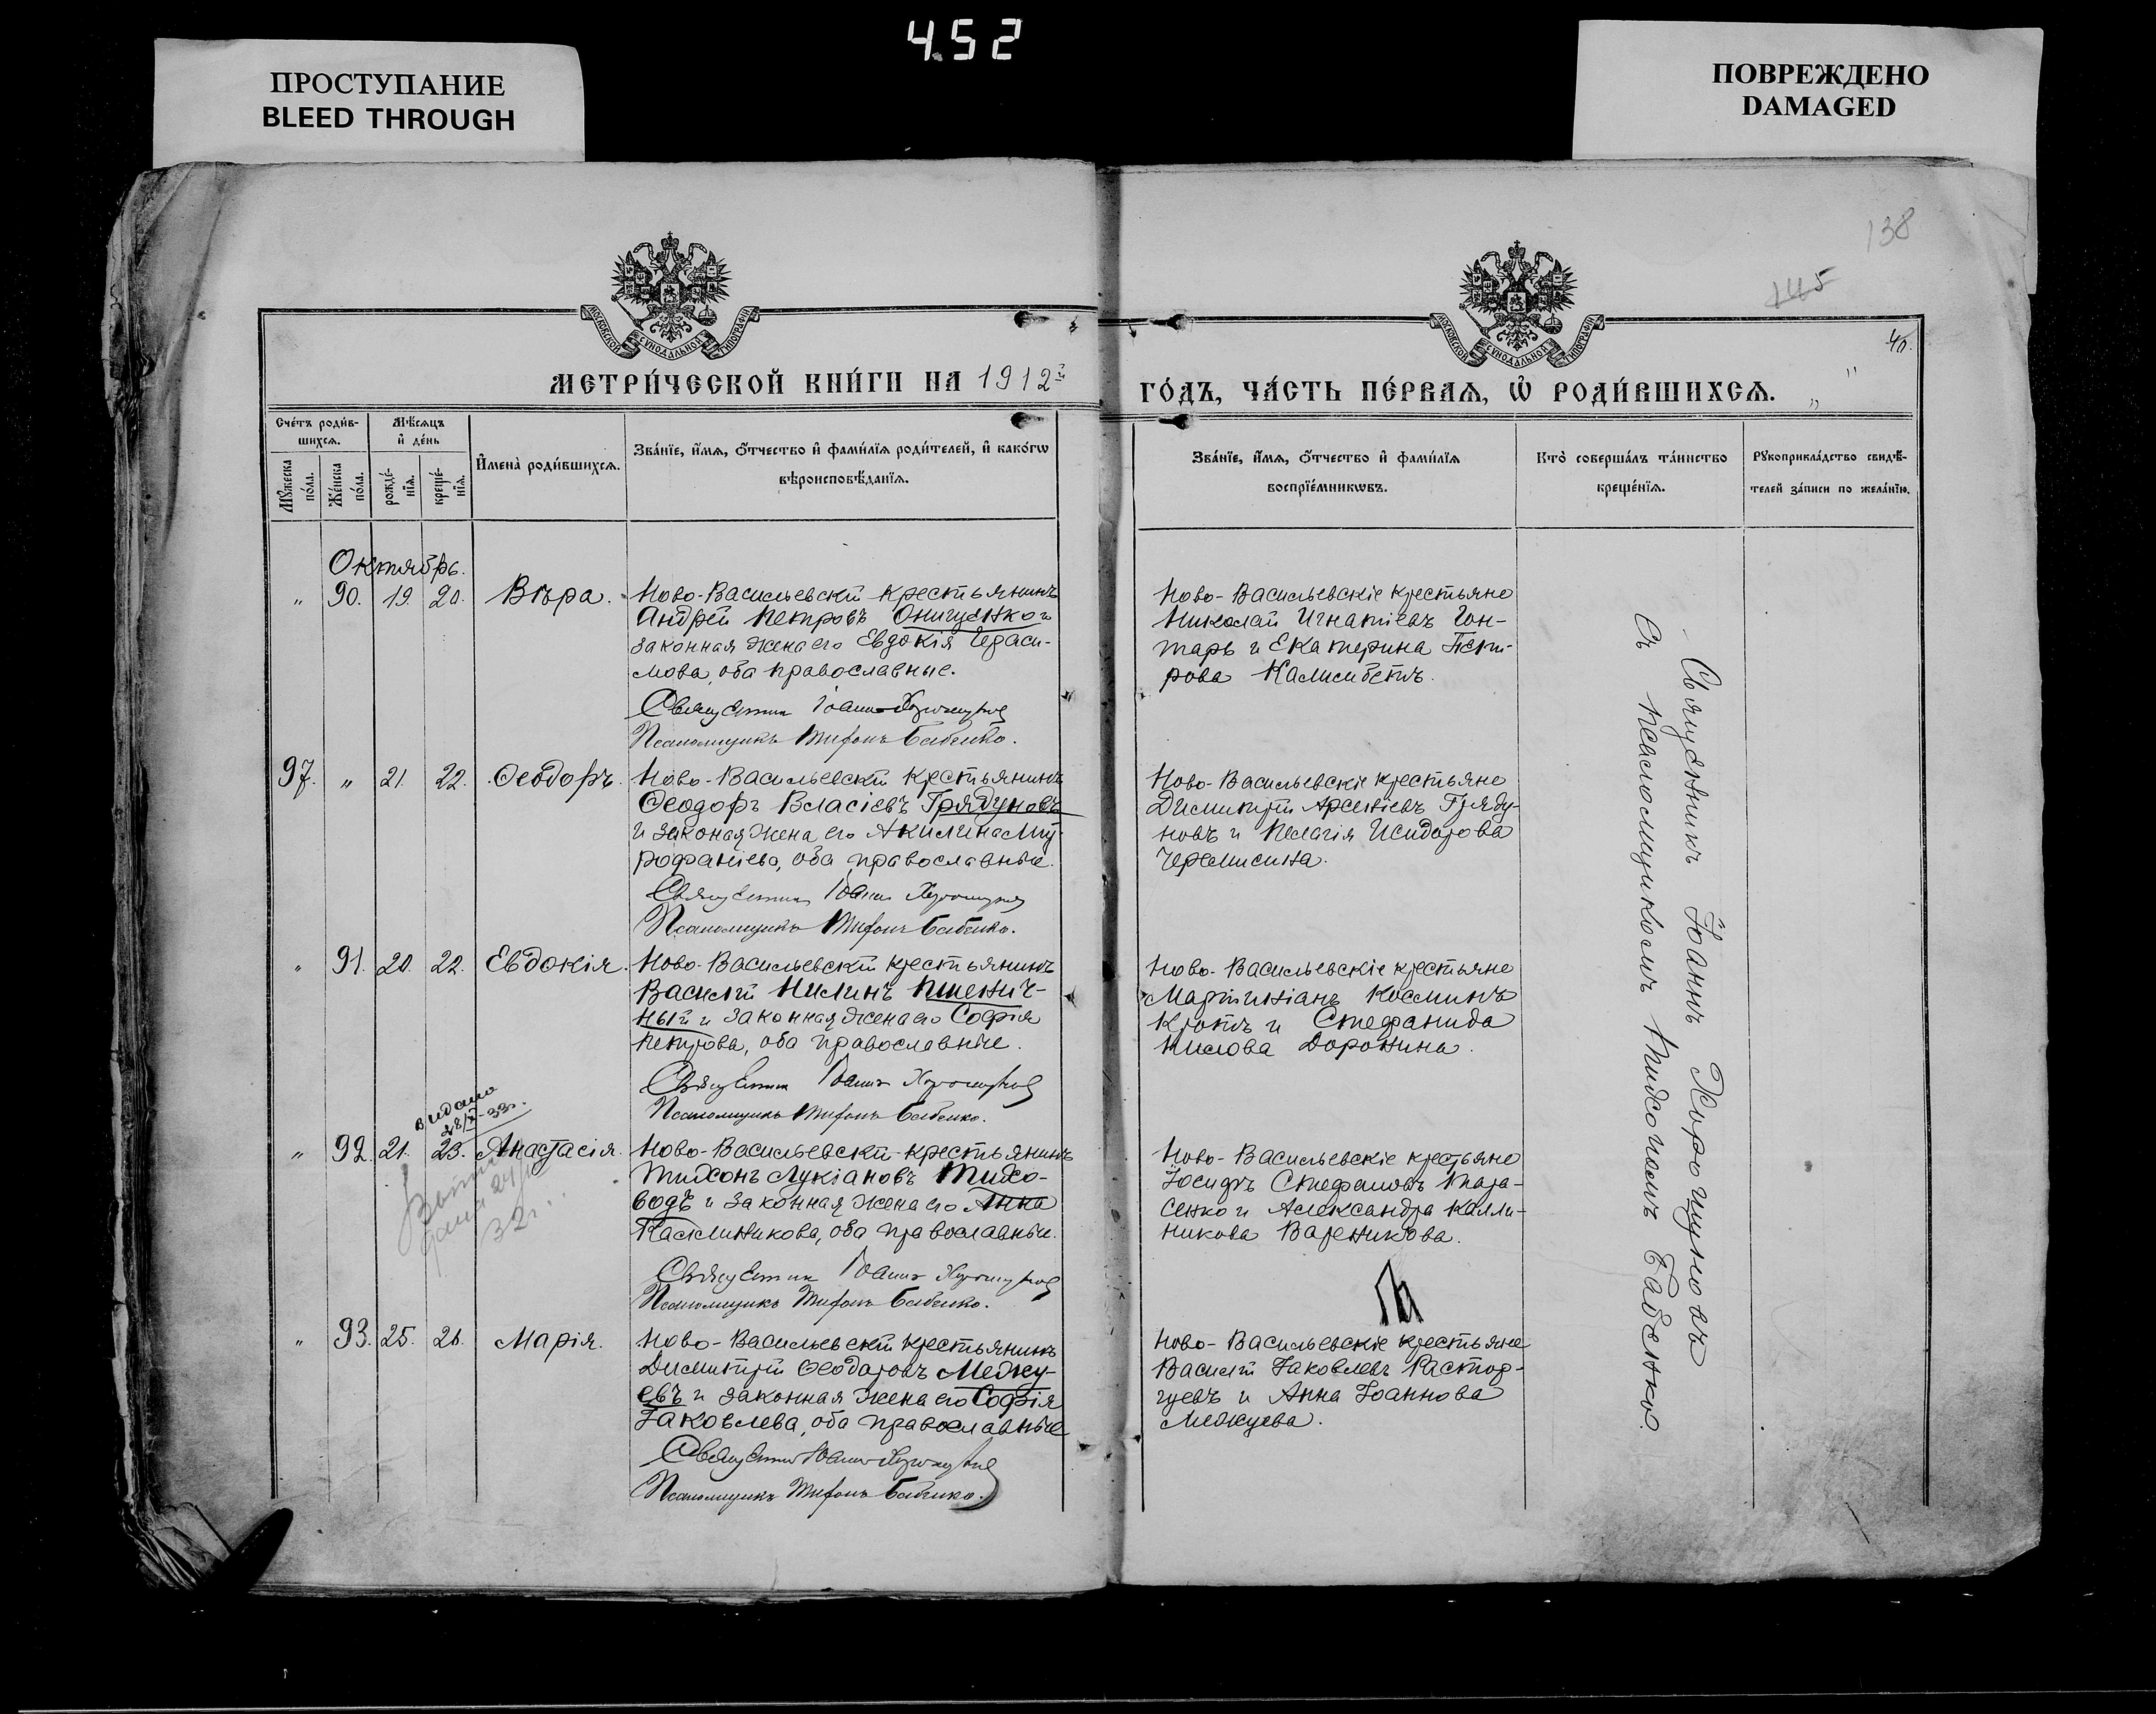 4.52
ПРОСТУПАНИЕ
BLEED THROUGH
ПОВРЕЖДЕНО
DAMAGED
138
145
40.
МОСКОВСКОЙ СѴНОДАЛЬНОЙ ТИПОГРАФІИ
МОСКОВСКОЙ СѴНОДАЛЬНОЙ ТИПОГРАФІИ
МЕТРИ́ЧЕСКОЙ КНИ́ГИ НА 1912й
ГО́ДЪ, ЧА́СТЬ ПЕ́РВАѦ, Ѡ҆ РОДИ́ВШИХСѦ.
Сче́тъ роди́в-
шихсѧ.
Мѣ́сѧцъ
и҆ де́нь
Мꙋ́жеска
по́ла.
Же́нска
по́ла.
рожде́-
нїѧ.
креще́-
нїѧ.
И҆мена̀ роди́вшихсѧ.
Зва́нїе, и҆́мѧ, ѻ҆́тчество и҆ фами́лїѧ роди́телей, и҆ како́гѡ
вѣроисповѣ́данїѧ.
Зва́нїе, и҆́мѧ, ѻ҆́тчество и҆ фами́лїѧ
воспрїе́мникѡвъ.
Кто̀ соверша́лъ та́инство
креще́нїѧ.
Рꙋкоприкла́дство свидѣ́-
телей за́писи по жела́нїю.
Октябрь.
„ 90. 19. 20. Вѣра.
Ново-Васильевскій крестьянинъ
Андрей Петровъ Онищенко и
законная жена его Евдокія Гераси-
мова, оба православные.
Священник Іоанн Хорошунов
Псаломщикъ Тифонъ Бабенко.
Ново-Васильевскіе крестьяне
Николай Игнатіевъ Гон-
тарь и Екатерина Пет-
рова
97. „ 21. 22. Ѳеодоръ.
Ново-Васильевскій крестьянинъ
Ѳеодоръ Власіевъ Грядуновъ
и законая жена его Акилина Ми-
рофаніева, оба православные.
Священник Іоанн Хорошунов
Псаломщикъ Тифонъ Бабенко.
Ново-Васильевскіе крестьяне
Димитрій Арсеніевъ Гряду-
новъ и Пелагія Исидорова
Черемисина.
„ 91. 20. 22. Евдокія.
Ново-Васильевскій крестьянинъ
Василій Нилинъ Пшенич-
ный и законная жена его Софія
Петрова, оба православные.
Священник Іоанн Хорошунов
Псаломщикъ Тифонъ Бабенко.
Ново-Васильевскіе крестьяне
Мартиніанъ Косминъ
Кротъ и Стефанида
Нилова Доронина.
видано
28/X-33г.
„ 92. 21. 23. Анастасія.
32г.
Ново-Васильевскій крестьянинъ
Тихонъ Лукіановъ Тихо-
водъ и законная жена его Анна
Каллиникова, оба православные.
Священник Іоанн Хорошунов
Псаломщикъ Тифонъ Бабенко.
Ново-Васильевскіе крестьяне
Іосифъ Стефановъ Тара-
сенко и Александра Калли-
никова Вареникова.
„ 93. 25. 26. Марія.
Ново-Васильевскій крестьянинъ
Димитрій Ѳеодоровъ Межу-
евъ и законная жена его Софія
Іаковлева, оба православные
Священник Іоанн Хорошунов
Псаломщикъ Тифонъ Бабенко.
Ново-Васильевскіе крестьяне
Василій Іаковлевъ Растор-
гуевъ и Анна Іоаннова
Межуева.
Священникъ Іоаннъ Хорошуновъ
съ псаломщикомъ Тифономъ Бабенко.